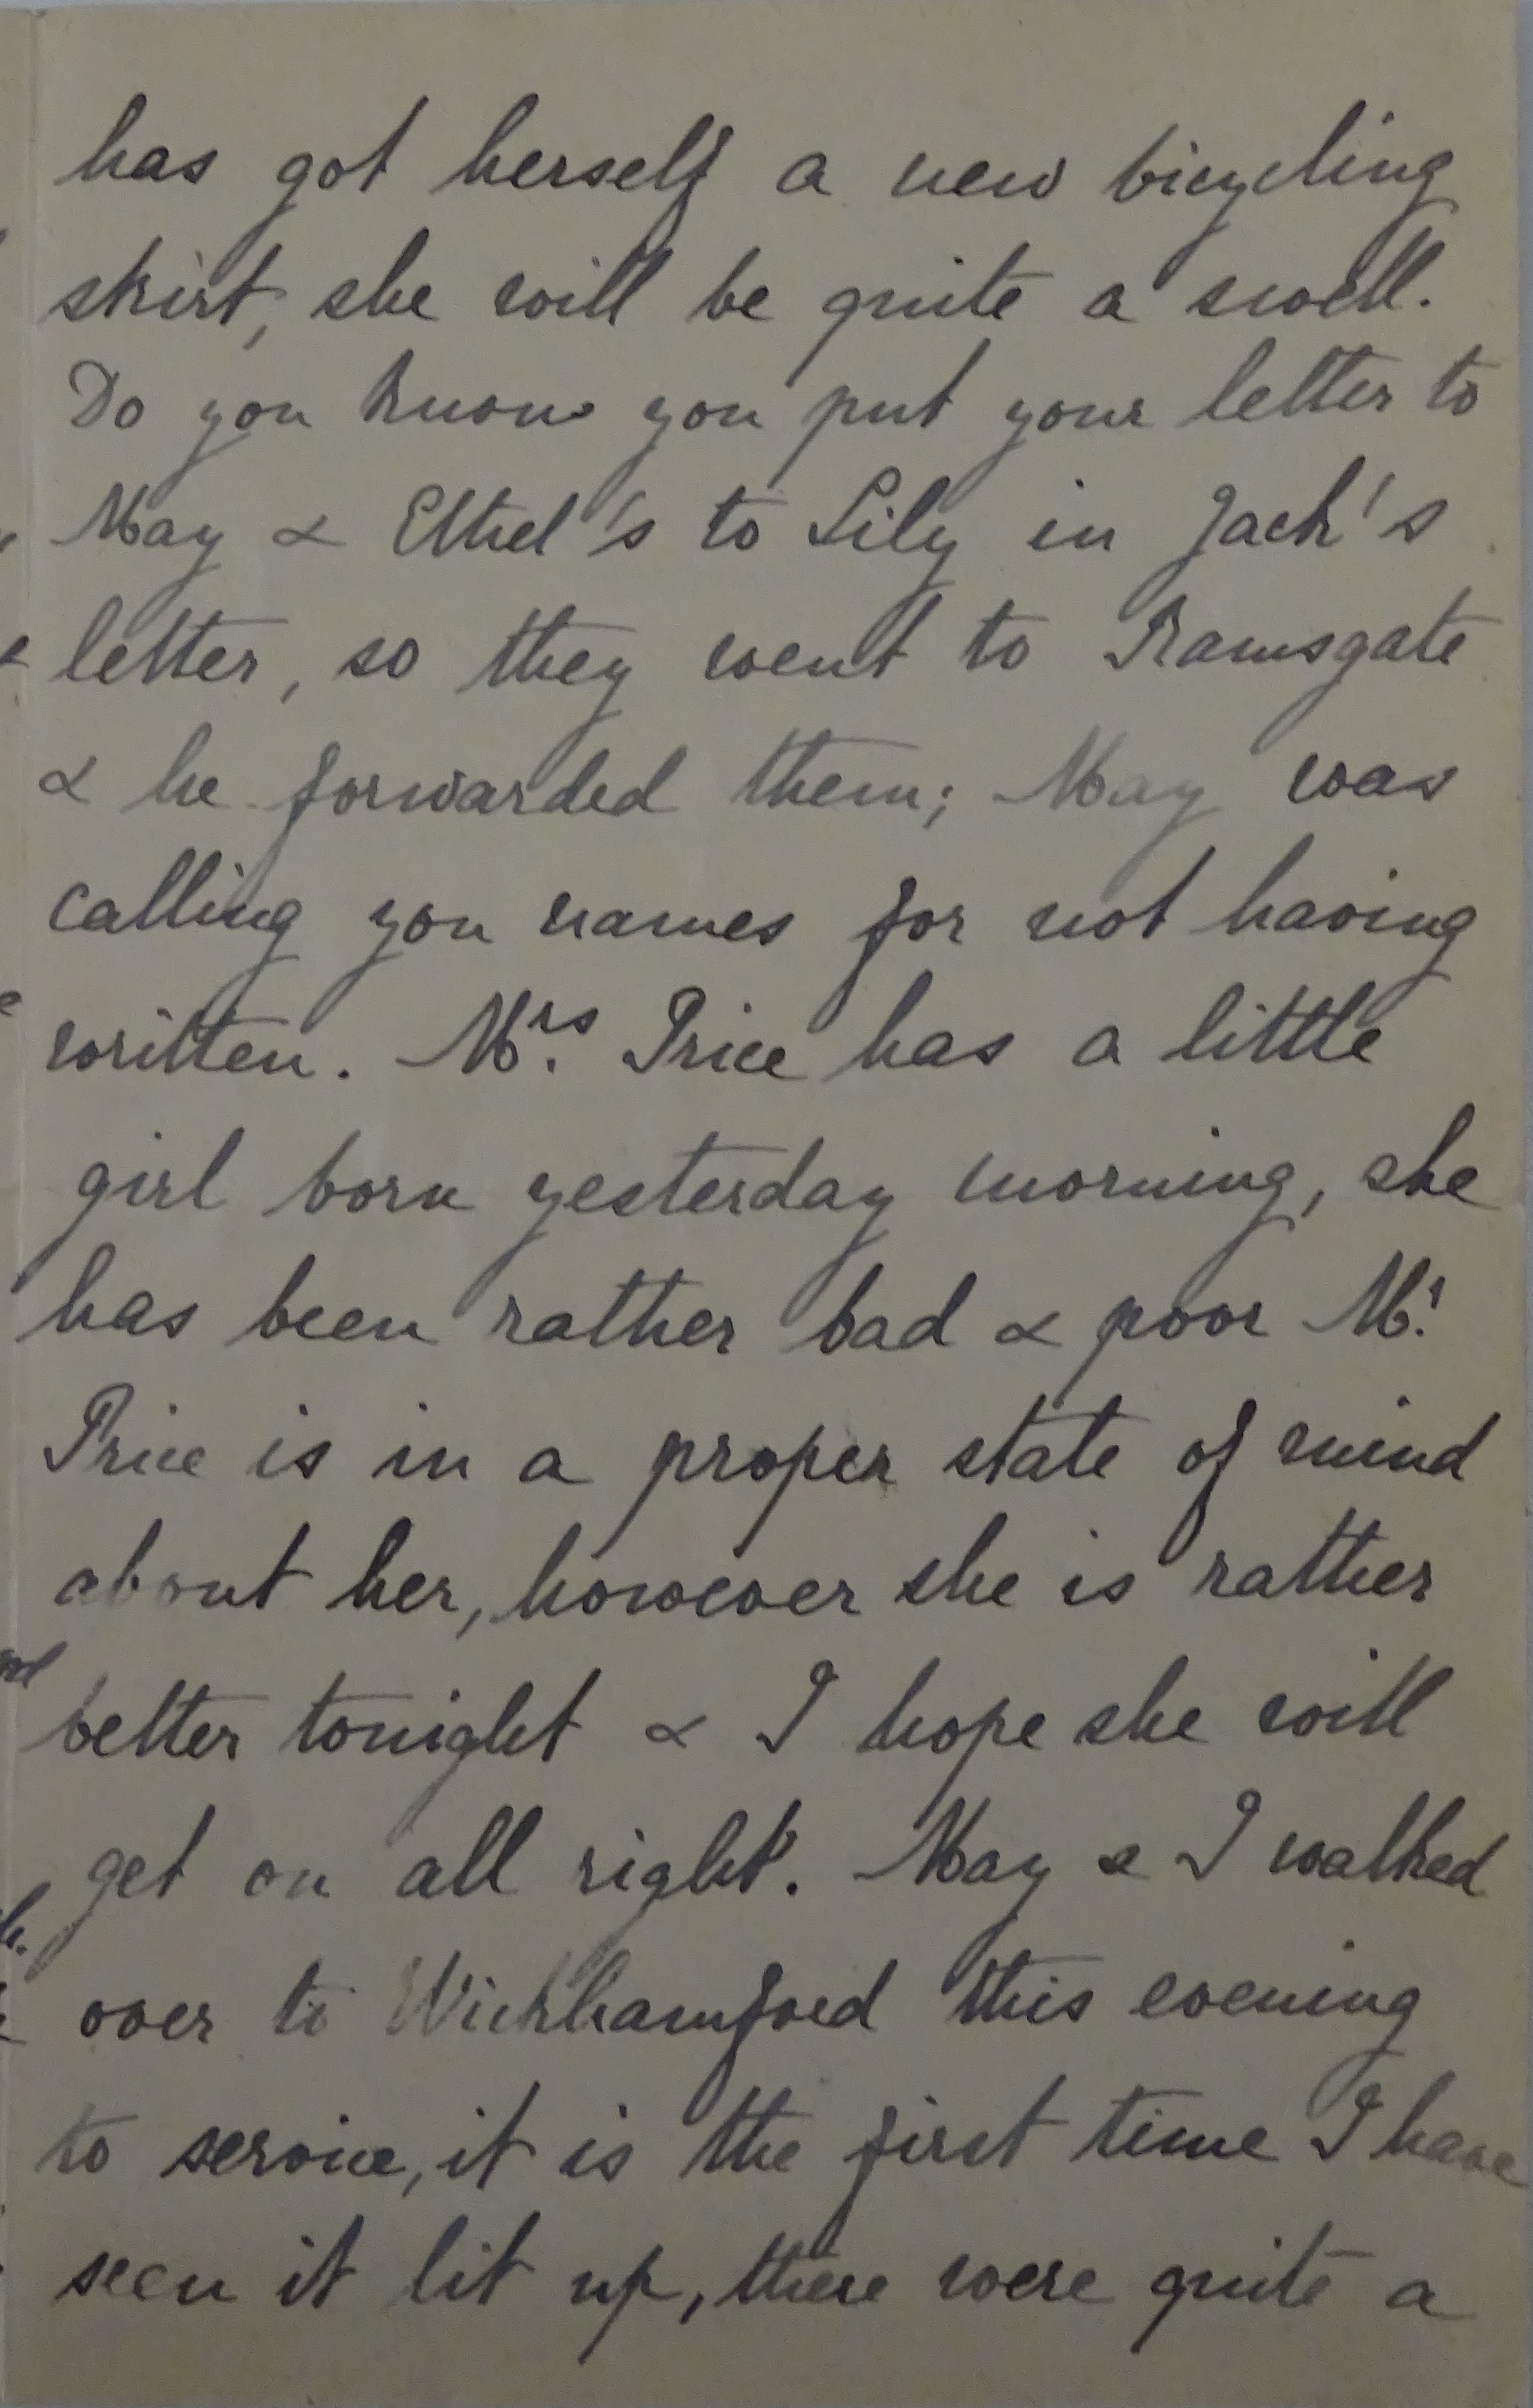 has got herself a new bicycling
skirt, she will be quite a swell.
Do you know you put your letter to
May & Ethel's to Lily in Jack's
letter, so they went to Ramsgate
& he forwarded them; May was
calling you names for not having
written. Mrs. Price has a little
girl born yesterday morning, she
has been rather bad & poor Mr.
Price is in a proper state of mind
about her, however she is rather
better tonight & I hope she will
get on all right. May & I walked
over to Wickhamford this evening
to service, it is the first time I have
seen it lit up, there were quite a